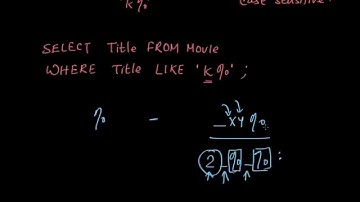 'K%'
case sensitive.
SELECT Title FROM Movie
WHERE Title LIKE 'K%';
% _ _XY%
2 _ % _ % :